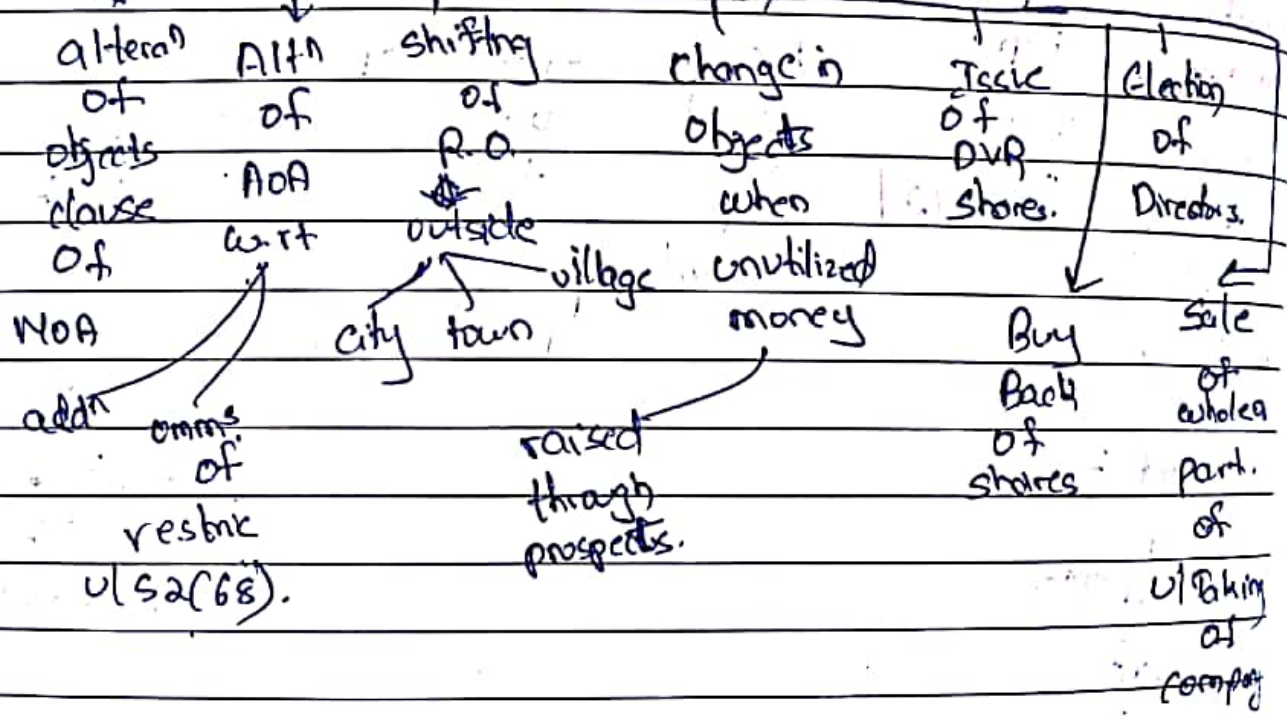 alteraⁿ
of
objects
clause
of
MOA
Altⁿ
of
AOA
w.r.t
addⁿ
ommⁿ
of
restric
u/s 2(68).
shifting
of
R.O.
outside
city
town
village
change in
objects
when
unutilized
money
raised
through
prospects.
Issue
of
DVR
shares.
Buy
Back
of
shares
Election
of
Directors.
Sale
of
whole
part.
of
U/Taking
of
company